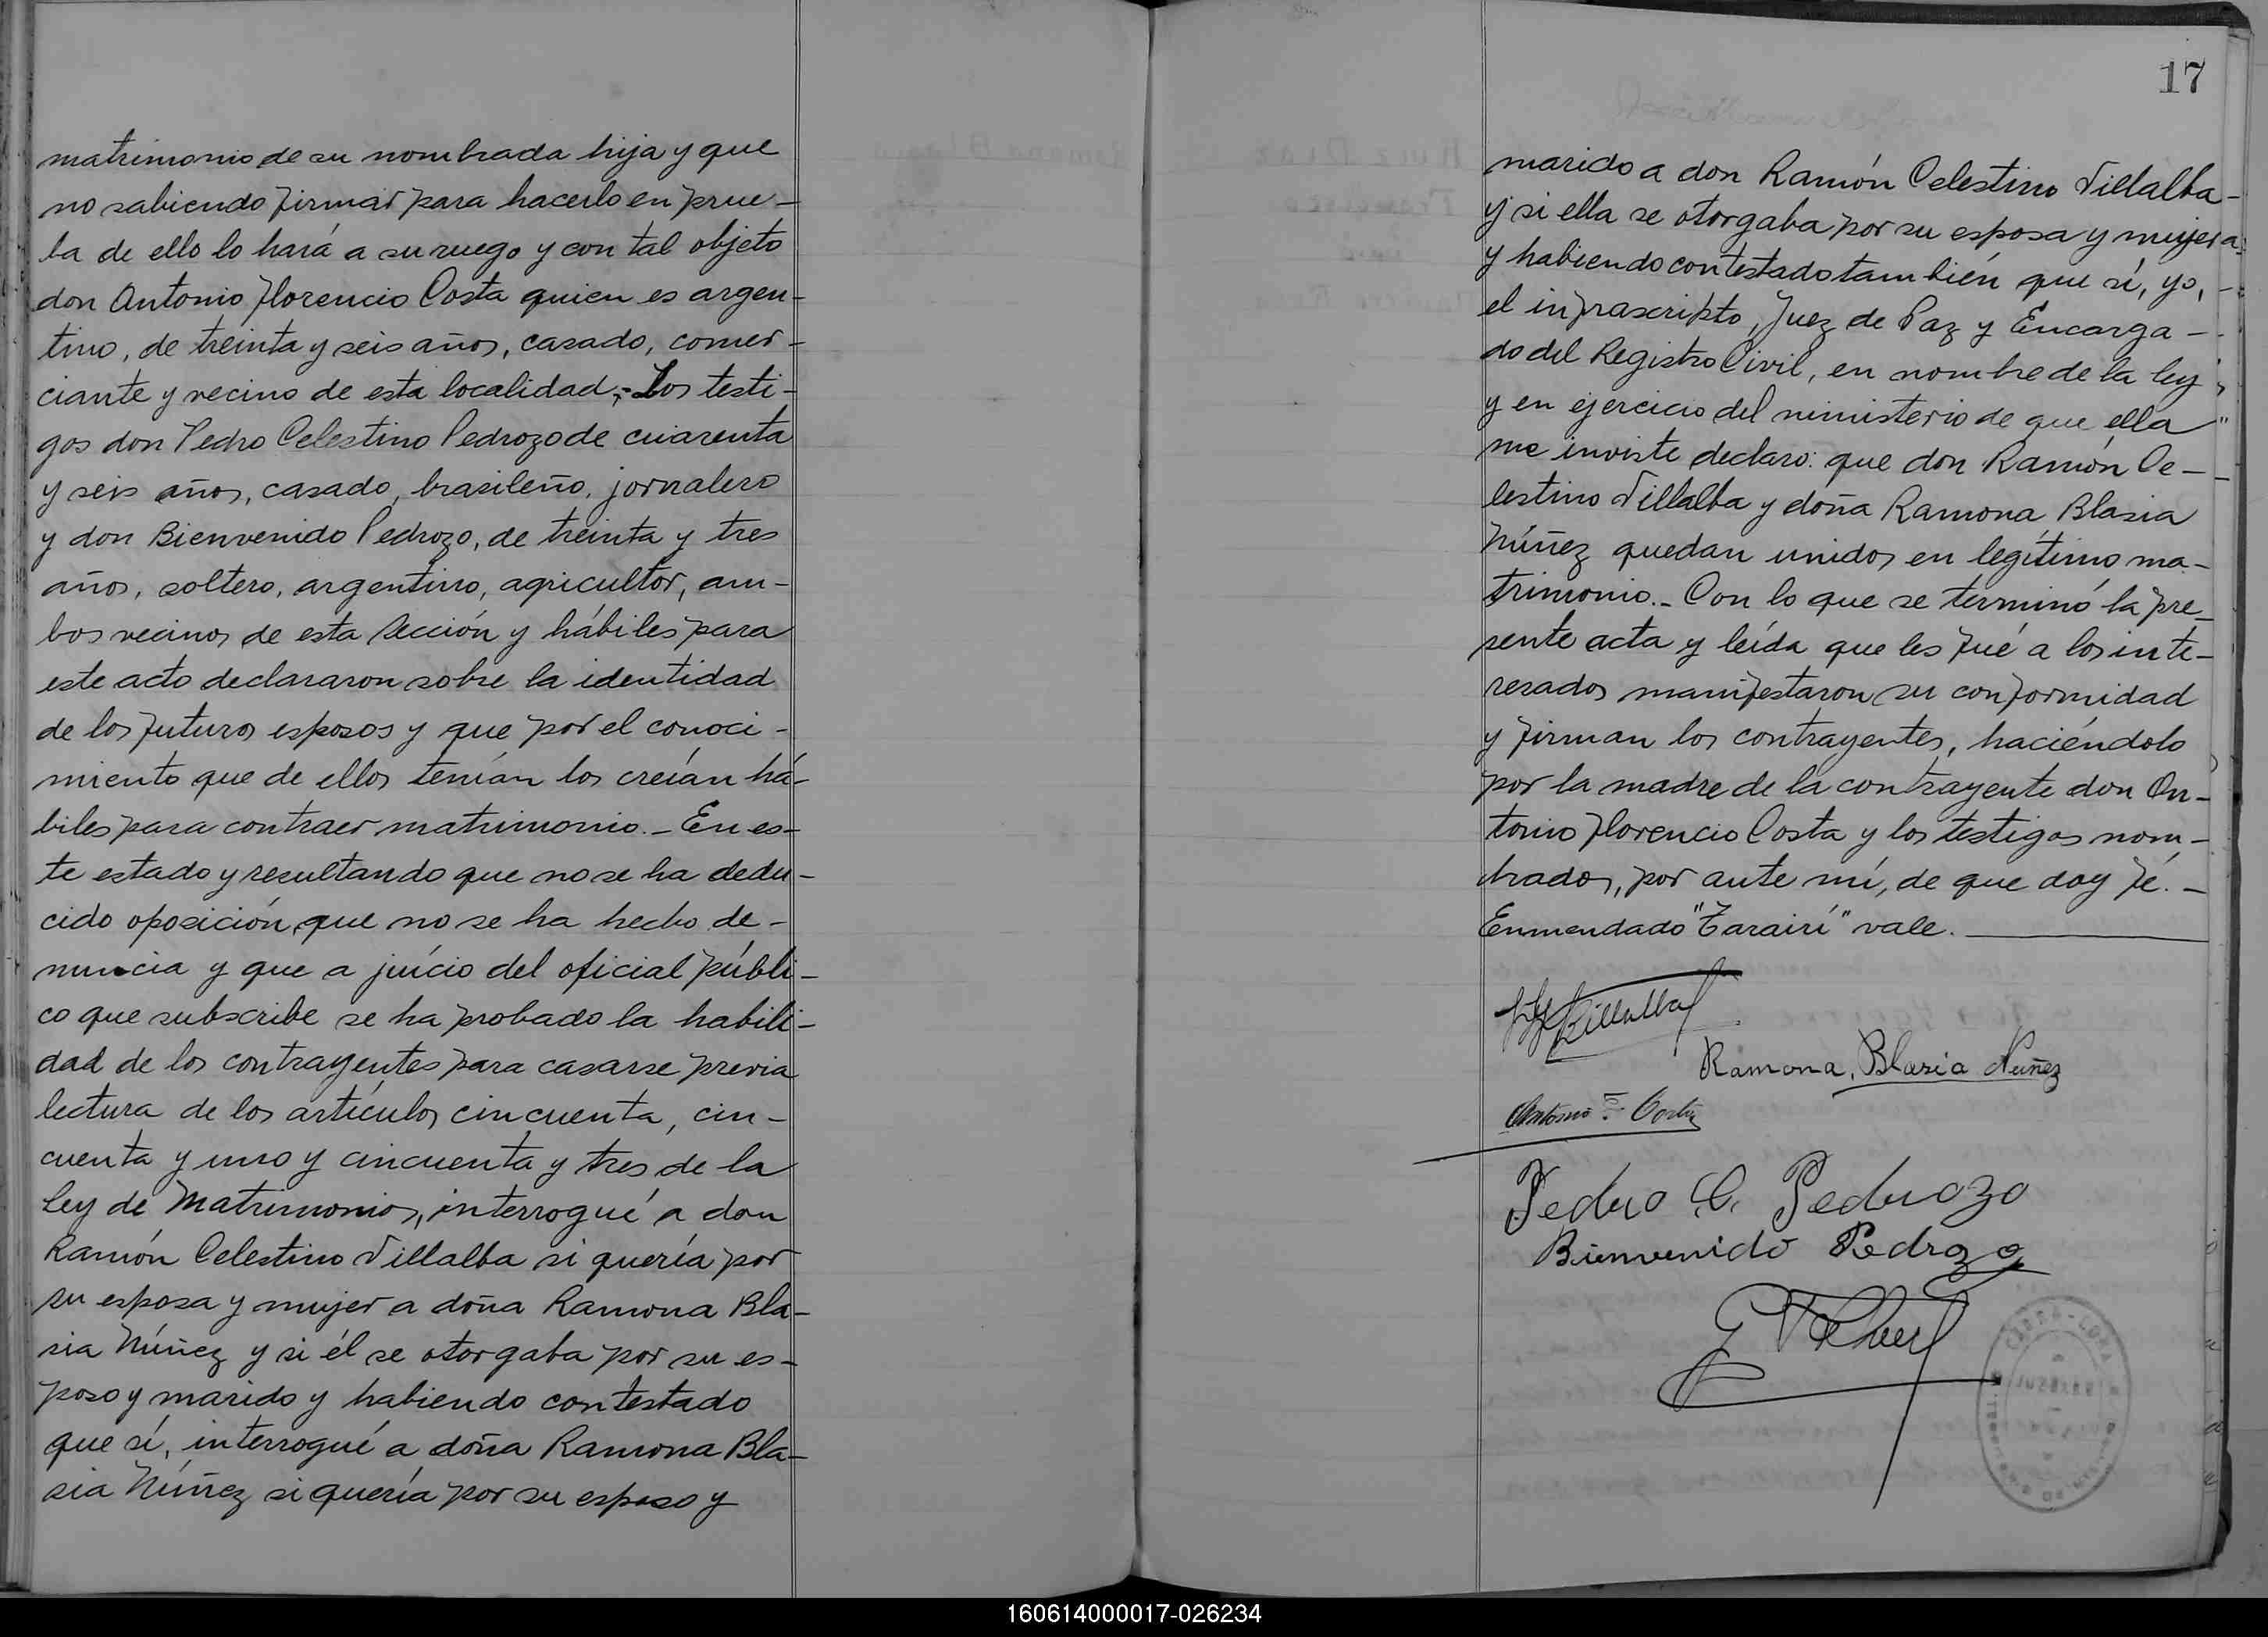 matrimonio de su nombrada hija y que
no sabiendo firmar para hacerlo en prue-
ba de ello lo hará a su ruego y con tal objeto
don Antonio Florencio Costa quien es argen-
tino, de treinta y seis años, casado, comer-
ciante y vecino de esta localidad.- Los testi-
gos don Pedro Celestino Pedrozo de cuarenta
y seis años, casado, brasileño, jornalero
y don Bienvenido Pedrozo, de treinta y tres
años, soltero, argentino, agricultor, am-
bos vecinos de esta Sección y hábiles para
este acto declararon sobre la identidad
de los futuros esposos y que por el conoci-
miento que de ellos tenían los creían há-
biles para contraer matrimonio.- En es-
te estado y resultando que no se ha dedu-
cido oposición, que no se ha hecho de-
nuncia y que a juício del oficial públi-
co que subscribe se ha probado la habili-
dad de los contrayentes para casarse previa
lectura de los artículos cincuenta, cin-
cuenta y uno y cincuenta y tres de la
Ley de Matrimonios, interrogué a don
Ramón Celestino Villalba si quería por
su esposa y mujer a doña Ramona Bla-
sia Núñez y si él se otorgaba por su es-
poso y marido y habiendo contestado
que sí, interrogué a doña Ramona Bla-
sia Núñez si quería por su esposo y
17
marido a don Ramón Celestino Villalba-
y si ella se otorgaba por su esposa y mujer
y habiendo contestado también que sí, yo,-
el infrascripto, Juez de Paz y Encarga-
do del Registro Civil, en nombre de la ley
y en ejercicio del ministerio de que ella
me inviste declaro: que don Ramón Ce-
lestino Villalba y doña Ramona Blasia
Núñez quedan unidos en legítimo ma-
trimonio.- Con lo que se terminó la pre-
sente acta y leída que les fué a los inte-
resados manifestaron su conformidad
y firman los contrayentes, haciéndolo
por la madre de la contrayente don An-
tonio Florencio Costa y los testigos nom-
brados, por ante mí, de que doy fé.-
Enmendado "Tarairí" vale.
Villalba
Ramona, Blasia Nuñez
Antonio F. Costa
Pedro C. Pedrozo
Bienvenido Pedrozo
160614000017-026234